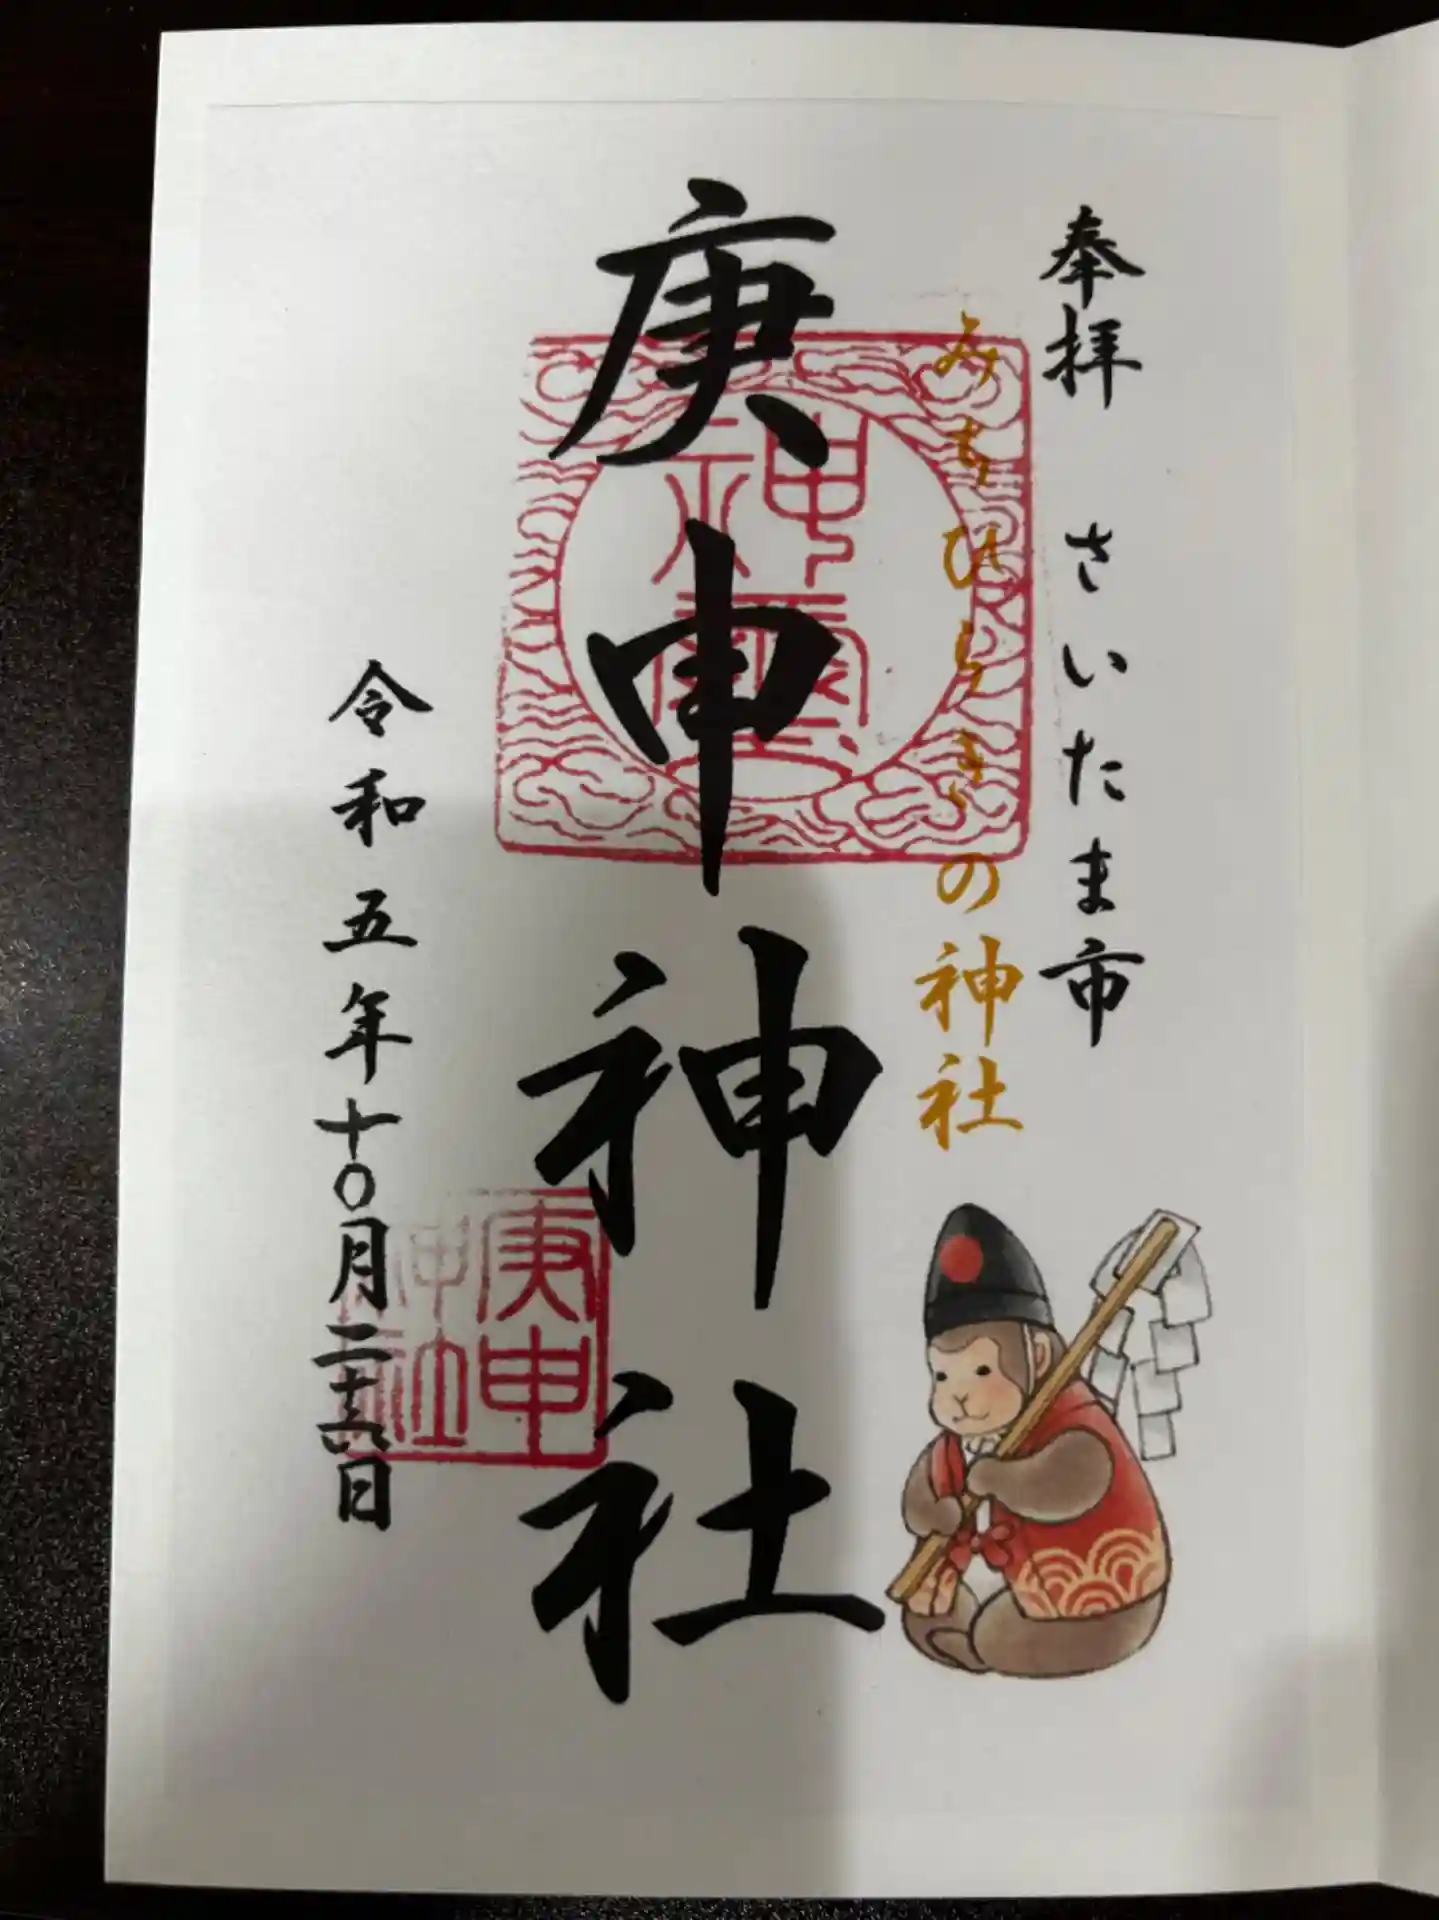 奉拝 さいたま市
みちひらきの神社
庚申神社
神璽
庚申神社
令和五年十〇月二十六日